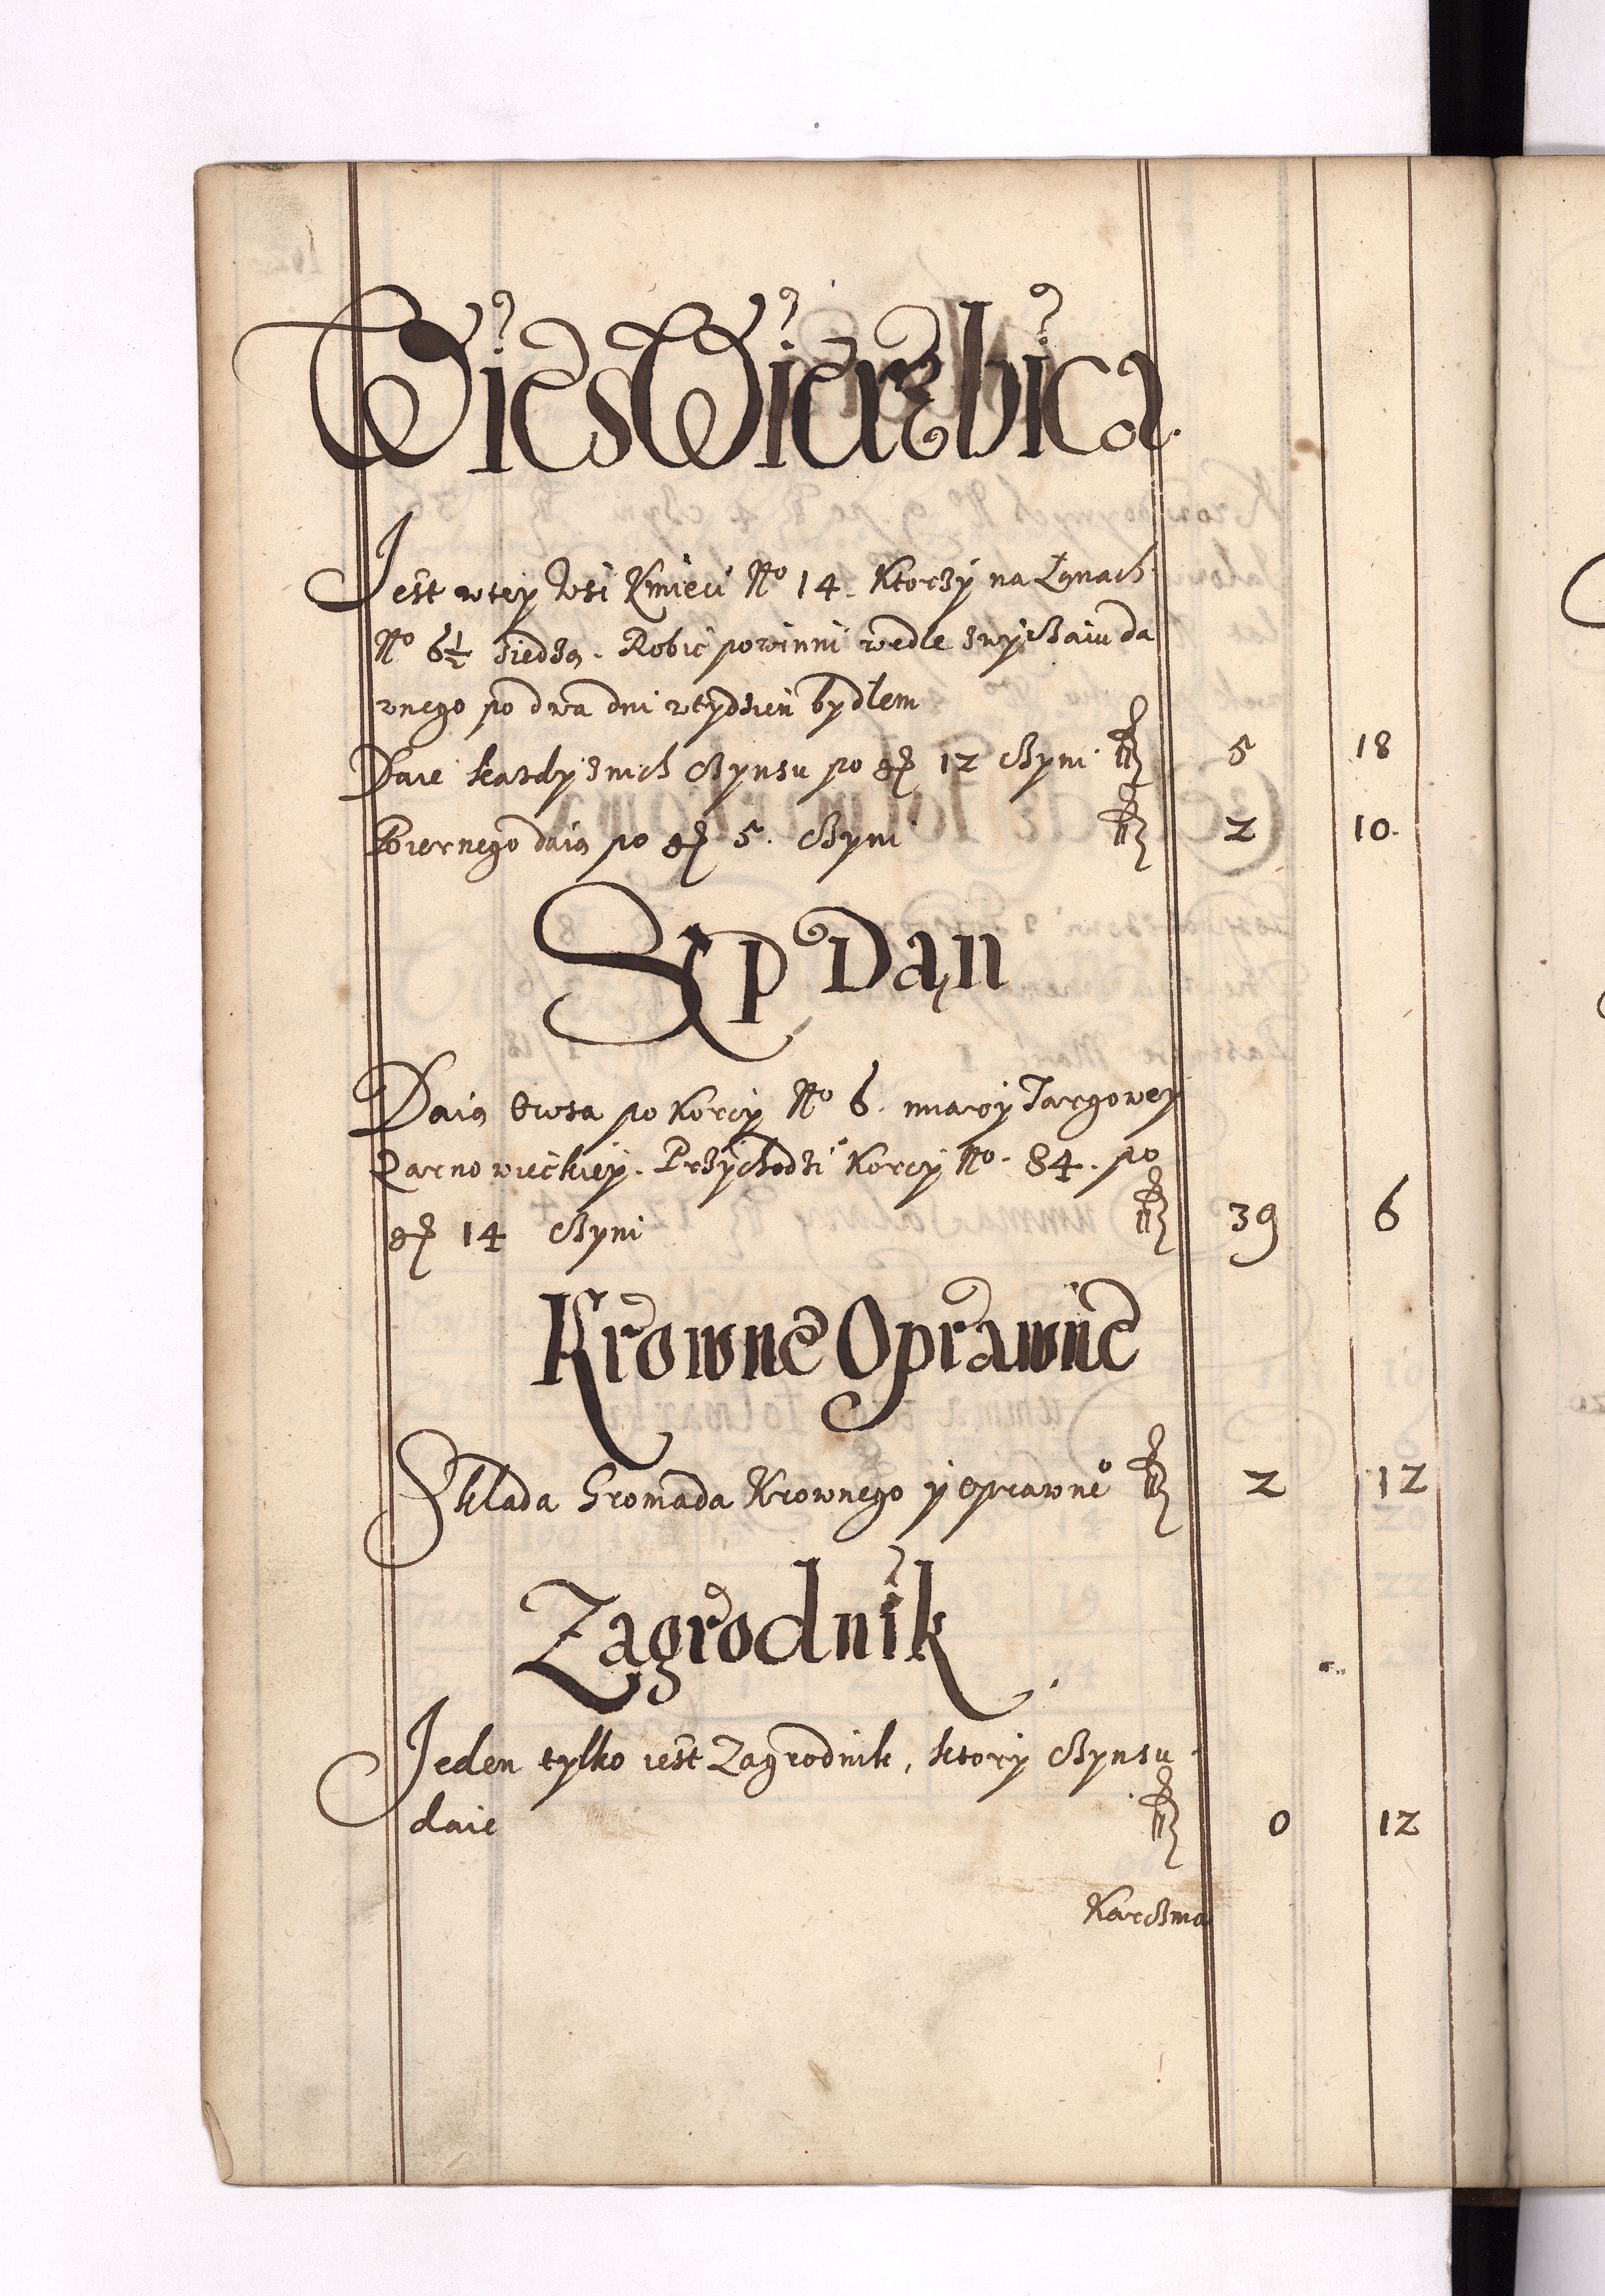 Wies Wierzbica
Jest wtey wsi Kmieci No 14. Ktorzy na Łanach
No 6½ siedzą. Robic powinni wedle zwyczaiu da
wnego po dwa dni wtydzien bydłem
Daie kazdy znich czynsu po gr 12 czyni fl 5 18
Pobiernego daią po gr 5. czyni fl 2 10.
Sęp Dan
Daią Owsa po Korcy No 6. miary Targowey
Zarnowieckiey. Przychodzi Korcy No. 84. po
gr 14 czyni fl 39 6
Krowne Oprawne
Składa Gromada Krownego y oprawneo fl 2 12
Zagrodnik
Jeden tylko iest Zagrodnik, ktory czynsu
daie fl 0 12
Karczma